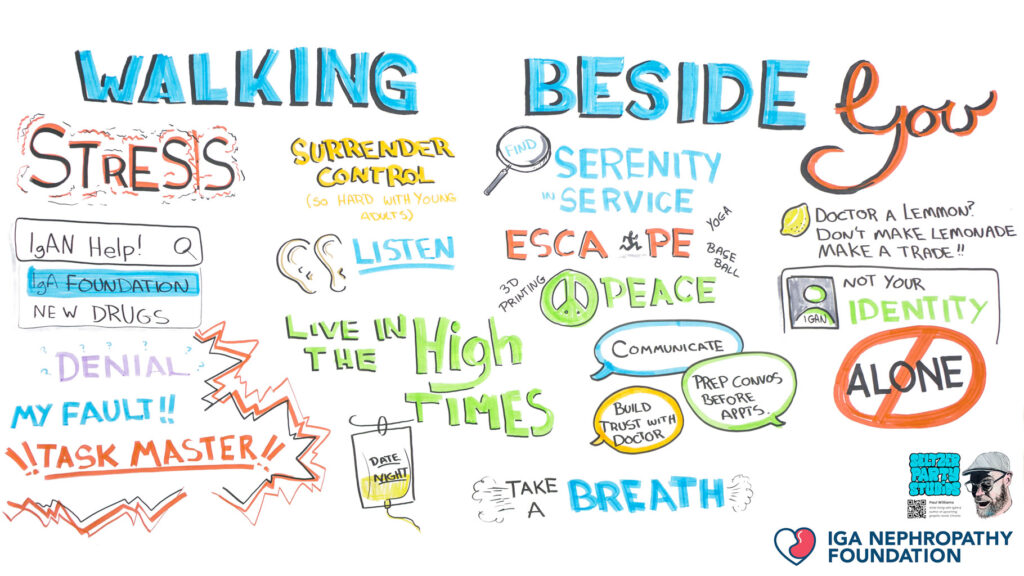 WALKING BESIDE You
STRESS
IgAN HELP!
IgA FOUNDATION
NEW DRUGS
DENIAL
? ? ? ? ?
MY FAULT!!
!!TASK MASTER!!
SURRENDER
CONTROL
(SO HARD WITH YOUNG
ADULTS)
LISTEN
LIVE IN
THE
High
TIMES
DATE
NIGHT
FIND
SERENITY
IN SERVICE
ESCAPE
YOGA
BASE
BALL
3D
PRINTING
PEACE
COMMUNICATE
PREP CONVOS
BEFORE
APPTS.
BUILD
TRUST WITH
DOCTOR
TAKE
A
BREATH
DOCTOR A LEMMON?
DON'T MAKE LEMONADE
MAKE A TRADE!!
IGAN
NOT YOUR
IDENTITY
ALONE
PARTY
STUDIOS
Paul Williams
IGA NEPHROPATHY
FOUNDATION